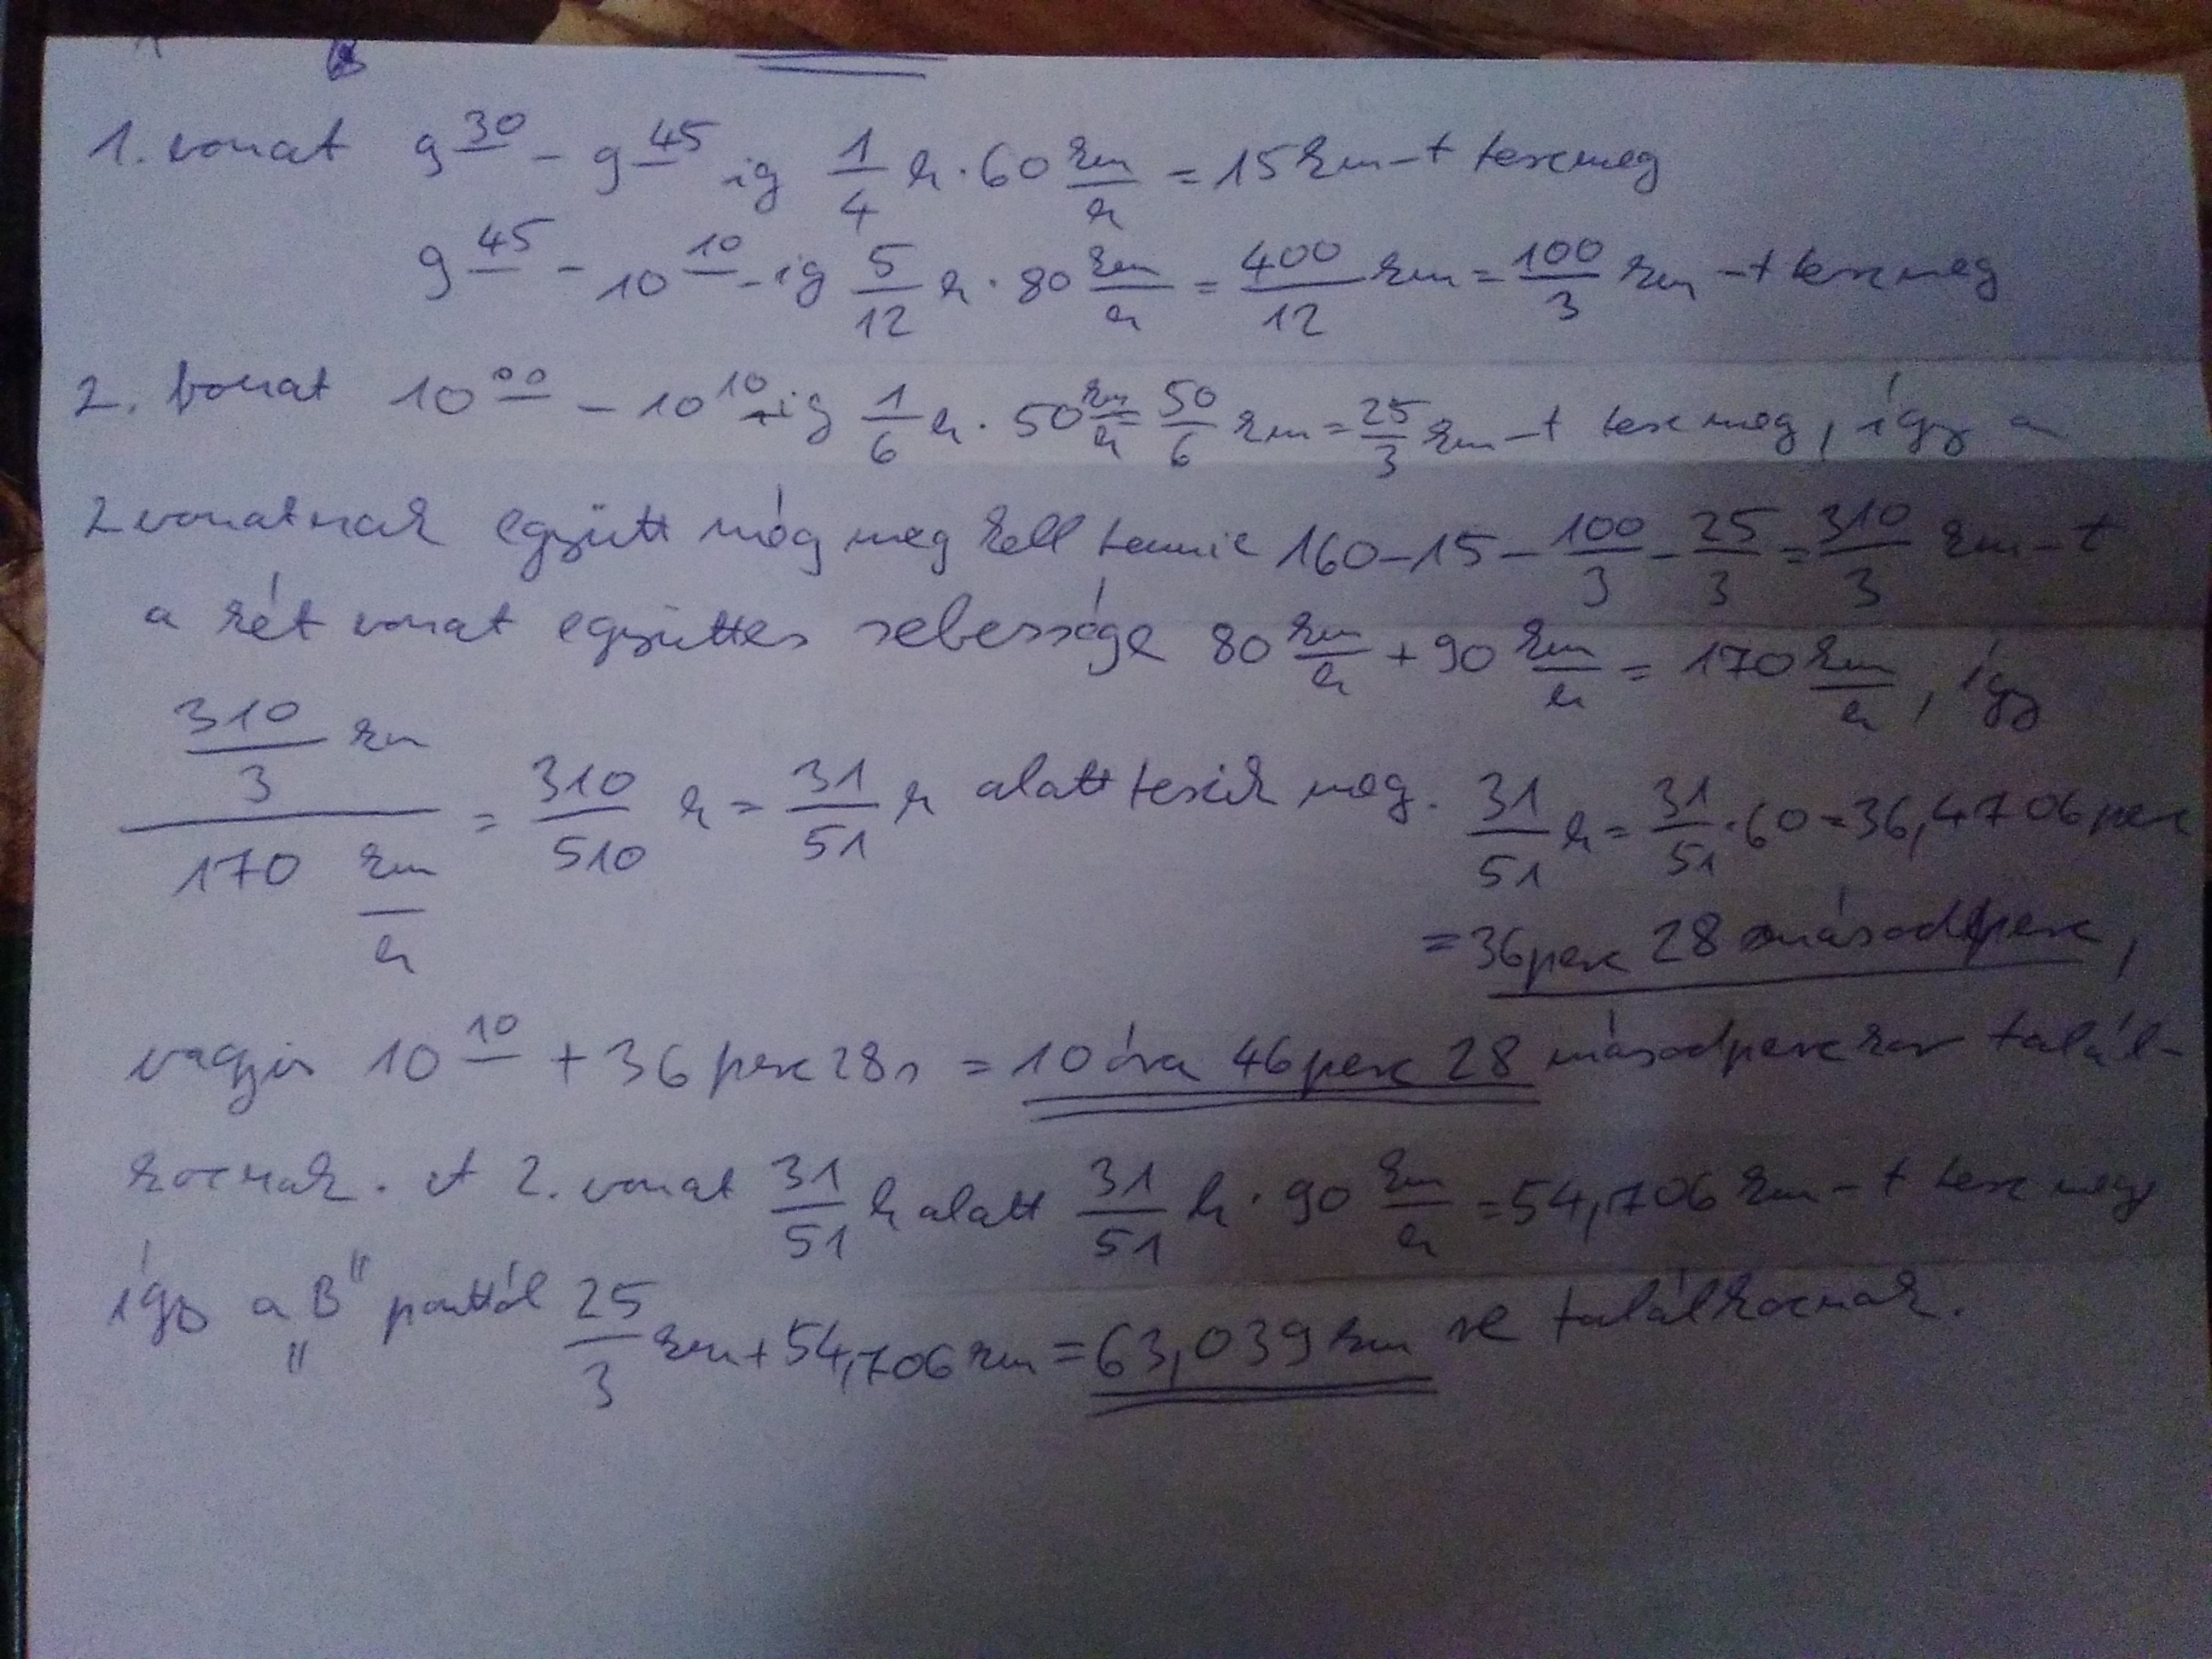 B
1. vonat 9 30 - 9 45 ig 1/4 h · 60 km/h = 15 km-t tesz meg
9 45 - 10 10 -ig 5/12 h · 80 km/h = 400/12 km = 100/3 km -t tesz meg
2. vonat 10 00 - 10 10 -ig 1/6 h · 50 km/h = 50/6 km = 25/3 km-t tesz meg, így a
2 vonatnak együtt még meg kell tennie 160-15-100/3-25/3=310/3 km-t
a két vonat együttes sebessége 80 km/h + 90 km/h = 170 km/h, így
310/3 km / 170 km/h = 310/510 h = 31/51 h alatt teszik meg. 31/51 h = 31/51 · 60 = 36,4706 perc
= 36 perc 28 másodperc,
vagyis 10 10 + 36 perc 28 s = 10 óra 46 perc 28 másodperckor talál-
koznak. A 2. vonat 31/51 h alatt 31/51 h · 90 km/h = 54,706 km-t tesz meg
így a „B" ponttól 25/3 km + 54,706 km = 63,039 km re találkoznak.